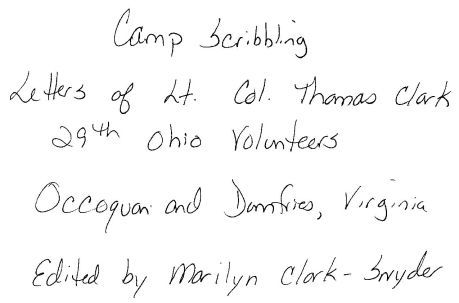 Camp Scribbling
Letters of Lt. Col. Thomas Clark
29th Ohio Volunteers
Occoquan and Dumfries, Virginia
Edited by Marilyn Clark-Snyder